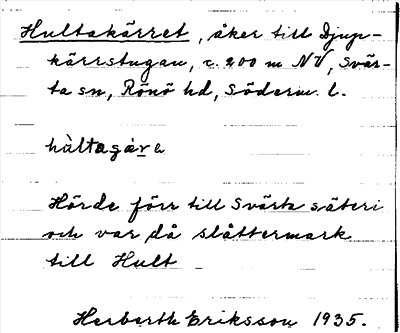 Hultakärret, åker till Djup-
kärrstugan, c. 200 m NV, Svär-
ta sn, Rönö hd, Söderm. l.
Hörde förr till Svärta säteri
och var då slåttermark
till Hult
Herberth Eriksson 1935.